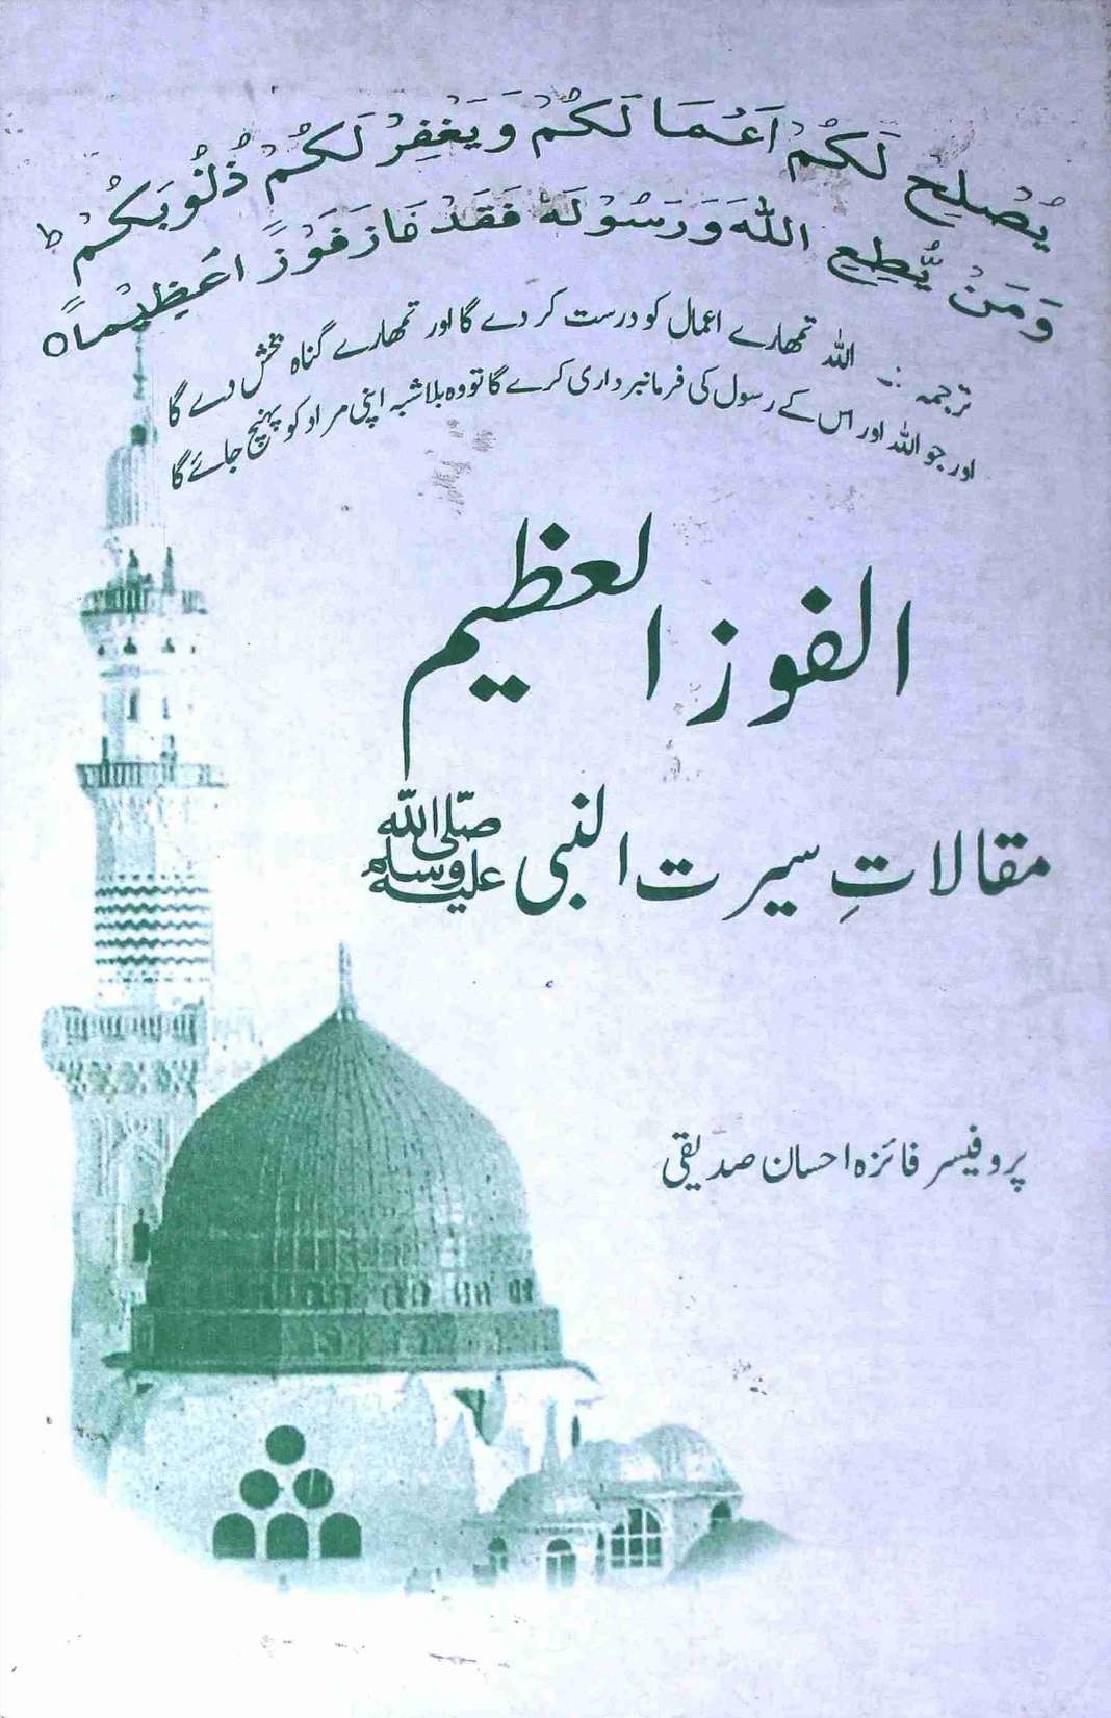 يُّصْلِحْ لَكُمْ اَعْمَا لَكُمْ وَ يَغْفِرْ لَكُمْ ذُنُوْ بَكُمْ ط
وَ مَنْ يُّطِعِ اللّٰهَ وَ رَسُوْ لَهٗ فَقَدْ فَا زَ فَوْزً ا عَظِيْماً ہ
ترجمہ :۔ اللہ تمھارے اعمال کو درست کر دے گا اور تمھارے گناہ بخش دے گا
اور جو اللہ اور اس کے رسول کی فرمانبرداری کرے گا تو وہ بلاشبہ اپنی مراد کو پہنچ جائے گا
الفوز العظیم
مقالاتِ سیرت النبی صلی اللہ علیہ وسلم
پروفیسر فائزہ احسان صدیقی